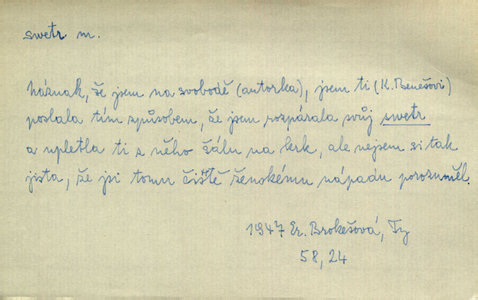 swetr m.
háznak, že jsem na svobodě (autorka), jsem ti (K. Benešovi)
poslala tím způsobem, že jsem rozpárala svůj swetr
a upletla ti z něho šálu na krk, ale nejsem si tak
jista, že jsi tomu čistě ženskému nápadu porozuměl.
1947 Er. Brokešová, Ty
58, 24